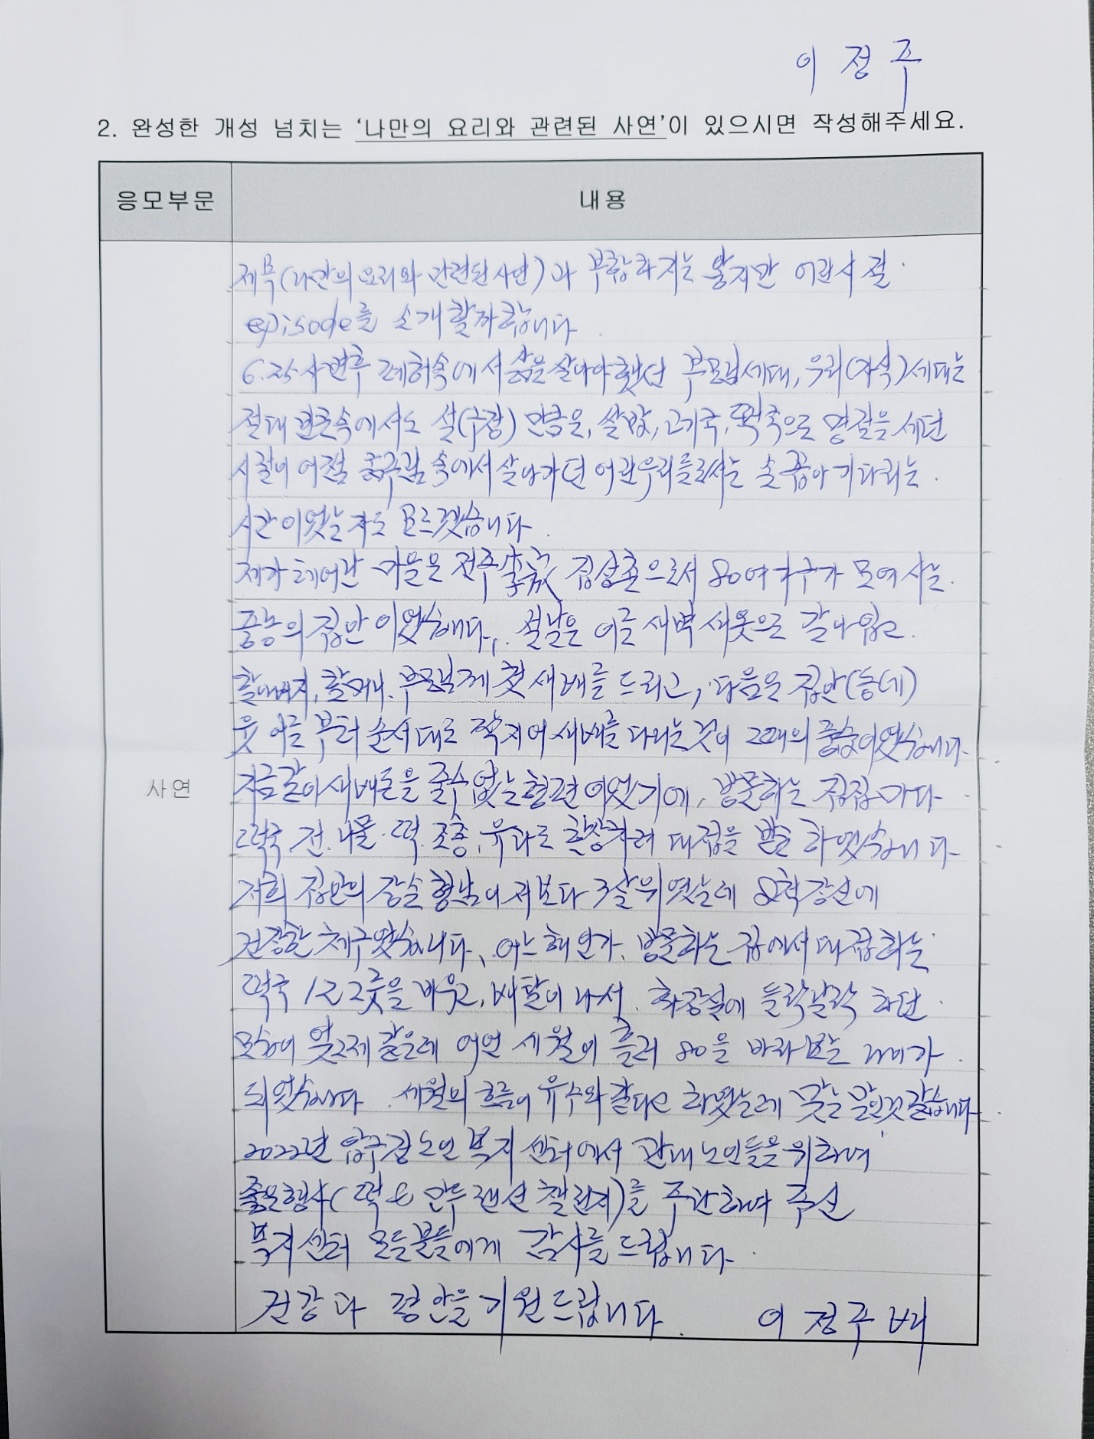 이 정 주
2. 완성한 개성 넘치는 '나만의 요리와 관련된 사연'이 있으시면 작성해주세요.
응모부문
내용
제목(나만의 요리와 관련된 사연)과 부합하지는 않지만 어린시절
episode를 소개할까합니다.
6.25사변후 폐허속에서 삶을 살아야했던 부모님세대, 우리(자식)세대는
절대 빈곤속에서도 설(구정) 만큼은, 쌀밥, 고기국, 떡국으로 명절을 세던
시절이 어쩜 굶주림 속에서 살아가던 어린우리들로서는 손꼽아 기다리는
시간이었는지도 모르겠습니다.
제가 태어난 마을은 전주李氏 집성촌으로서 80여가구가 모여사는
풍농의 집안이었습니다. 설날은 이른새벽 새옷으로 갈아입고
할아버지, 할머니, 부모님께 첫새배를 드리고, 다음은 집안(동네)
웃어른 부터 순서대로 짝지어 새배를 다니는것이 그때의 풍습이었습니다
지금같이 새배돈을 줄수없는형편이었기에, 방문하는 집집마다
떡국 전.나물.떡.조총.유과로 한상차려 대접을 받곤 하였습니다
저희 집안의 장손형님이 저보다 3살위였는데 8척장신에
건장한 체구였습니다. 어느해인가. 방문하는 집에서 대접하는
떡국 12그릇을 비우고, 배탈이 나서, 화장실에 들락날락 하던
모습이 엊그제 같은데 어언 세월이 흘러 80을 바라보는 나이가
되었습니다. 세월의 흐름이 유수와 같다고 하였는데 맞는말인것 같습니다
2022년 압구정노인 복지센터에서 관내노인들을위하여
좋은행사(떡 & 만두 랜선 챌린지)를 주관하여 주신
복지센터 모든분들에게 감사를 드립니다.
건강과 평안을 기원드립니다. 이 정 주 배
사연